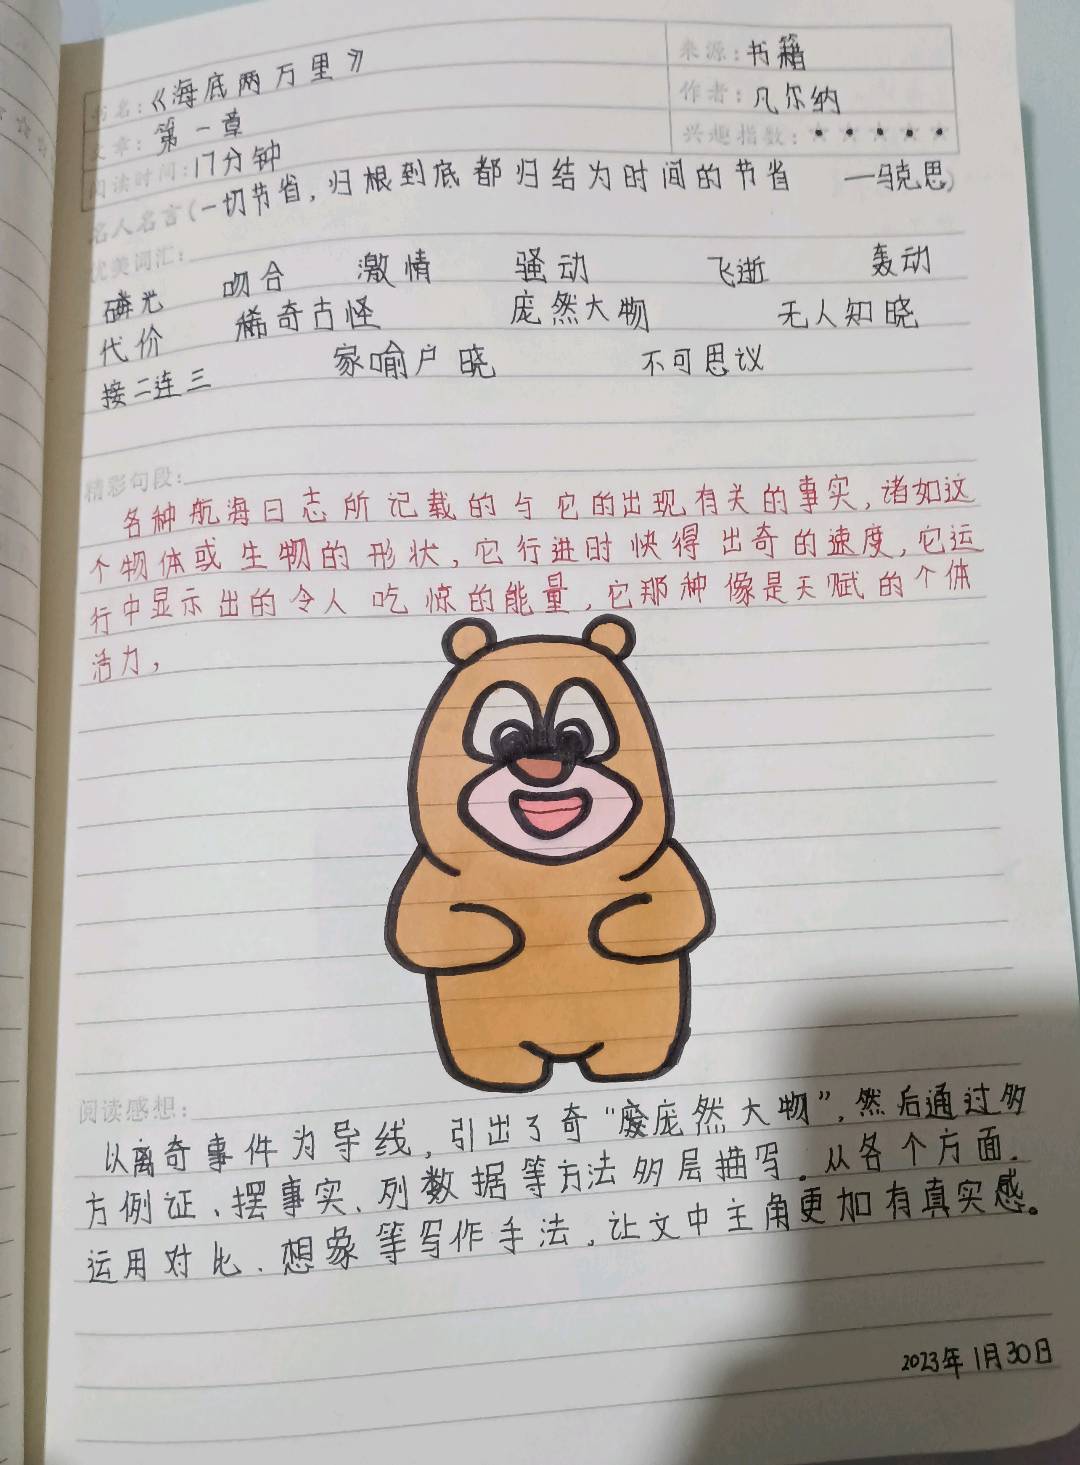 书名:《海底两万里》
来源:书籍
文章:第一章
作者:凡尔纳
阅读时间:17分钟
兴趣指数:★★★★★
名人名言(一切节省,归根到底都归结为时间的节省 —马克思)
优美词汇:
磷光 吻合 激情 骚动 飞逝 轰动
代价 稀奇古怪 庞然大物 无人知晓
接二连三 家喻户晓 不可思议
精彩句段:
各种航海日志所记载的与它的出现有关的事实,诸如这
个物体或生物的形状,它行进时快得出奇的速度,它运
行中显示出的令人吃惊的能量,它那种像是天赋的个体
活力,
阅读感想:
以离奇事件为导线,引出了奇“庞然大物”,然后通过多
方例证、摆事实、列数据等方法多层描写。从各个方面.
运用对比、想象等写作手法,让文中主角更加有真实感。
2023年1月30日